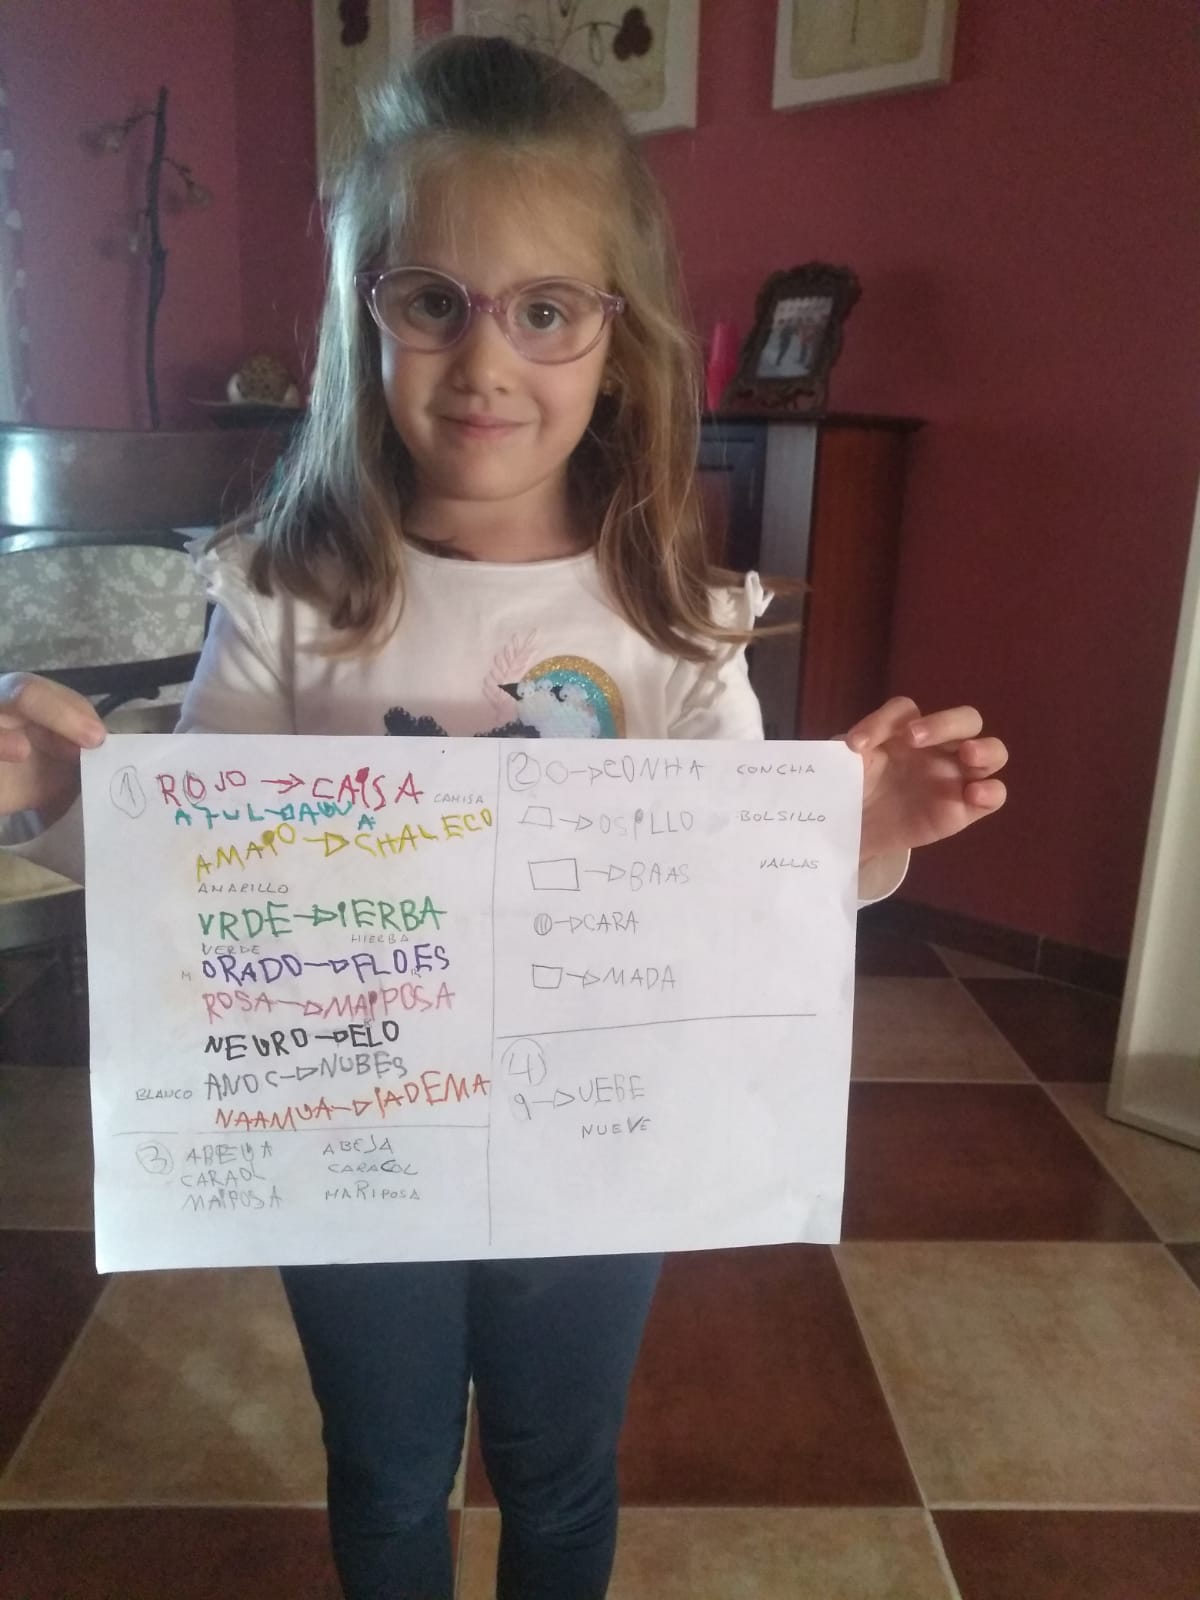 1 ROJO → CAISA CAMISA
AZUL → AGUA
AMAIO → CHALECO
AMARILLO
VRDE → IERBA
VERDE HIERBA
M ORADO → FLOES
R
ROSA → MAIPOSA
R
NEGRO → PELO
BLANCO ANOC → NUBES
NAAMUA → IADEMA
3 ABEUA ABEJA
CARAOL CARACOL
MAIPOSA MARIPOSA
2 → CONHA CONCHA
→ OSILLO BOLSILLO
→ BAAS VALLAS
→ CARA
→ MADA
4
9 → UEBE
NUEVE